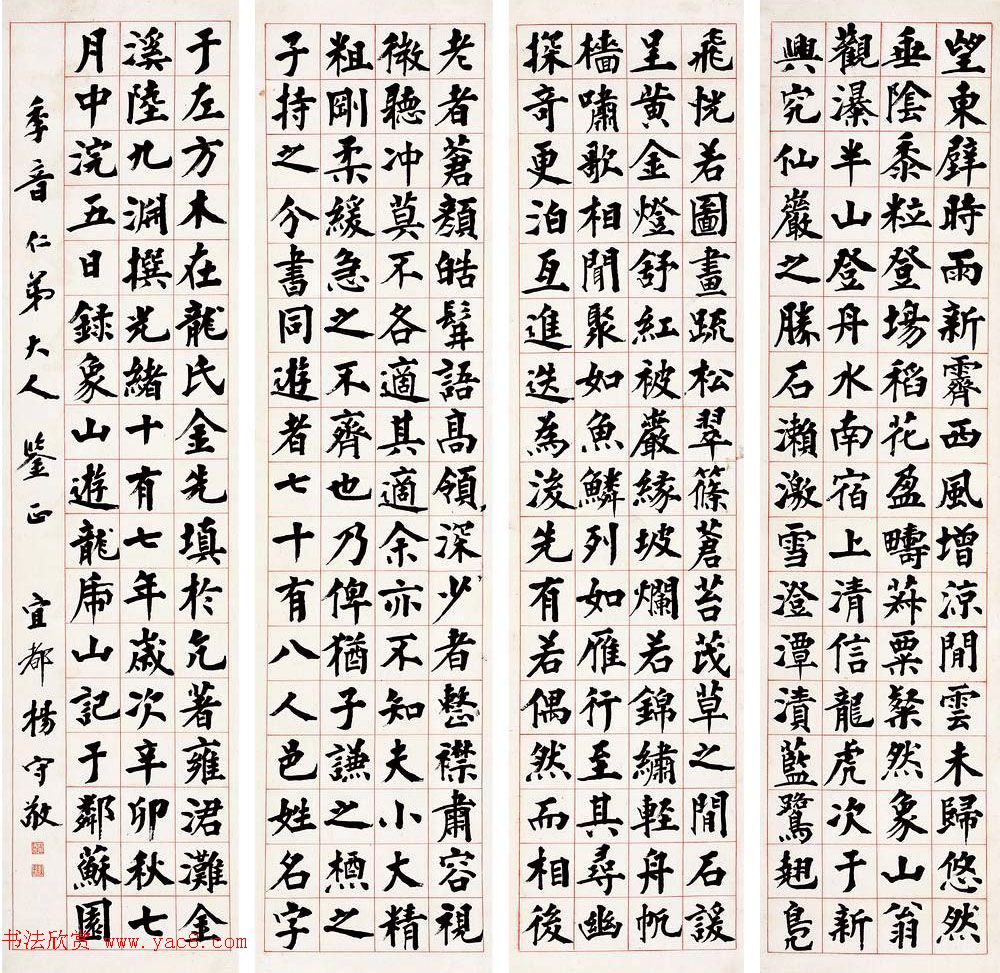 望東壁時雨新霽西風增涼閒雲未歸悠然
垂陰黍粒登場稻花盈疇菽粟粲然象山翁
觀瀑半山登舟水南宿上清信龍虎次于新
興究仙巖之勝石瀨激雪澄潭漬藍鷺翹鳧
飛恍若圖畫疏松翠篠蒼苔茂草之間石諼
呈黃金燈舒紅被巖緣坡爛若錦繡輕舟帆
檣嘯歌相聞聚如魚鱗列如雁行至其尋幽
探奇更泊互進迭為浚先有若偶然而相後
老者蒼顏皓髯語高領深少者整襟肅容視
微聽冲莫不各適其適余亦不知夫小大精
粗剛柔緩急之不齊也乃俾猶子謙之槱之
子持之分書同遊者七十有八人邑姓名字
于左方木在龍氏金先填於亢著雍涒灘金
溪陸九淵撰光緒十有七年歲次辛卯秋七
月中浣五日錄象山遊龍虎山記于鄰蘇園
季音仁弟大人 鑒正 宜都楊守敬
书法欣赏 www.yac8.com